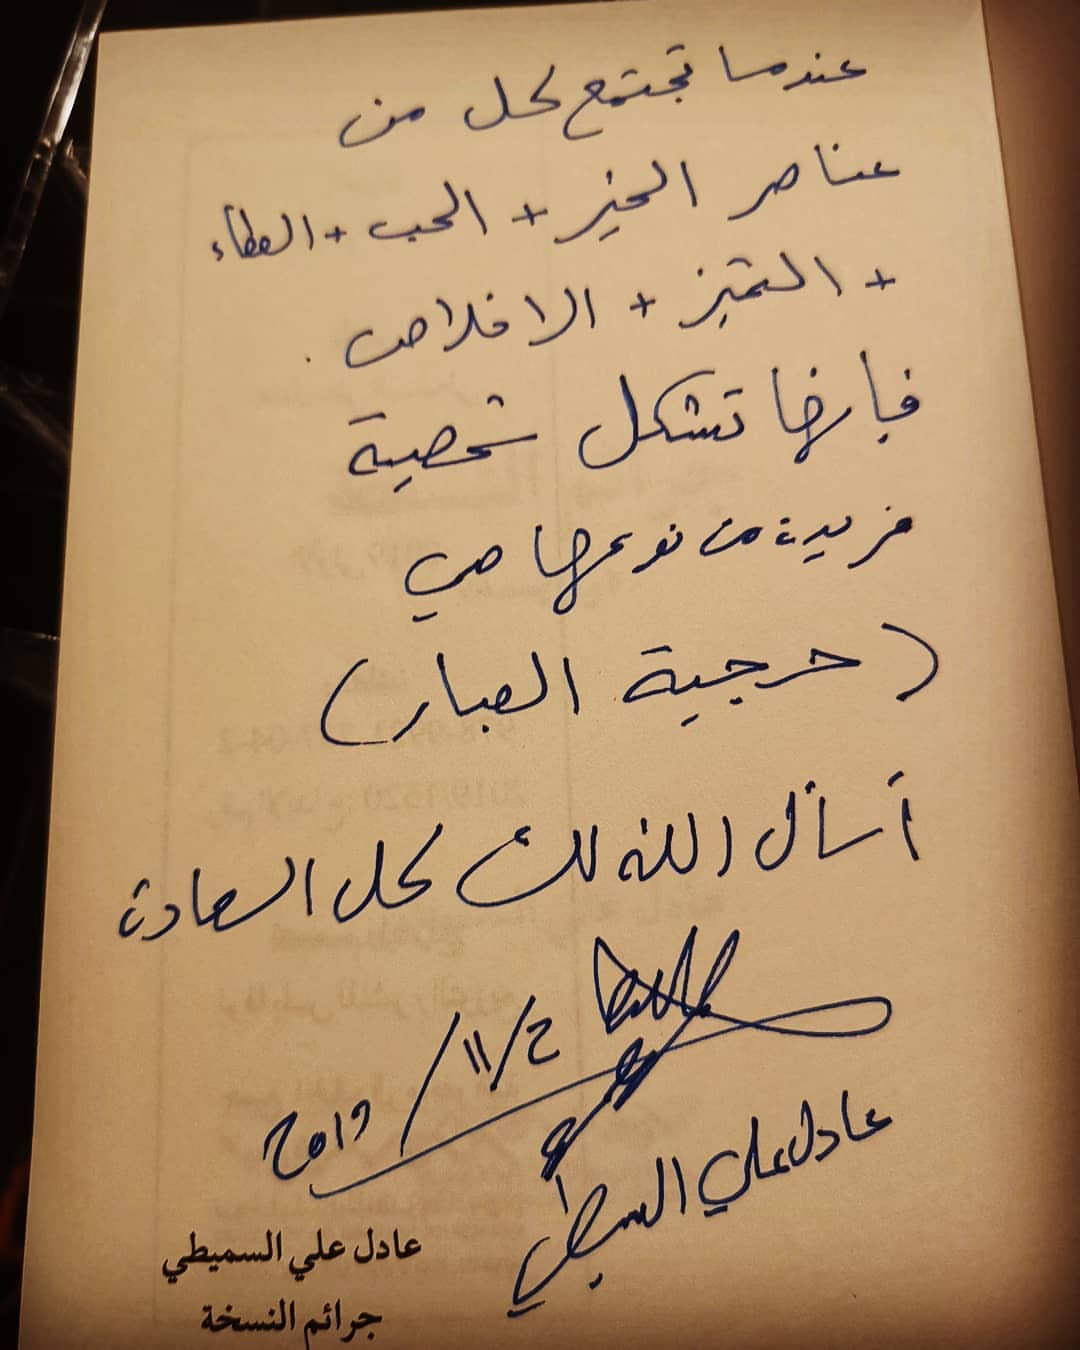 عندما تجتمع كل من
عناصر الخير + الحب + العطاء
+ التميز + الاخلاص.
فإنها تشكل شخصية
فريدة من نوعها هي
(حرجية الصبار)
أسأل الله لك كل السعادة
2019/11/2
عادل علي السميطي
عادل علي السميطي
جرائم النسخة